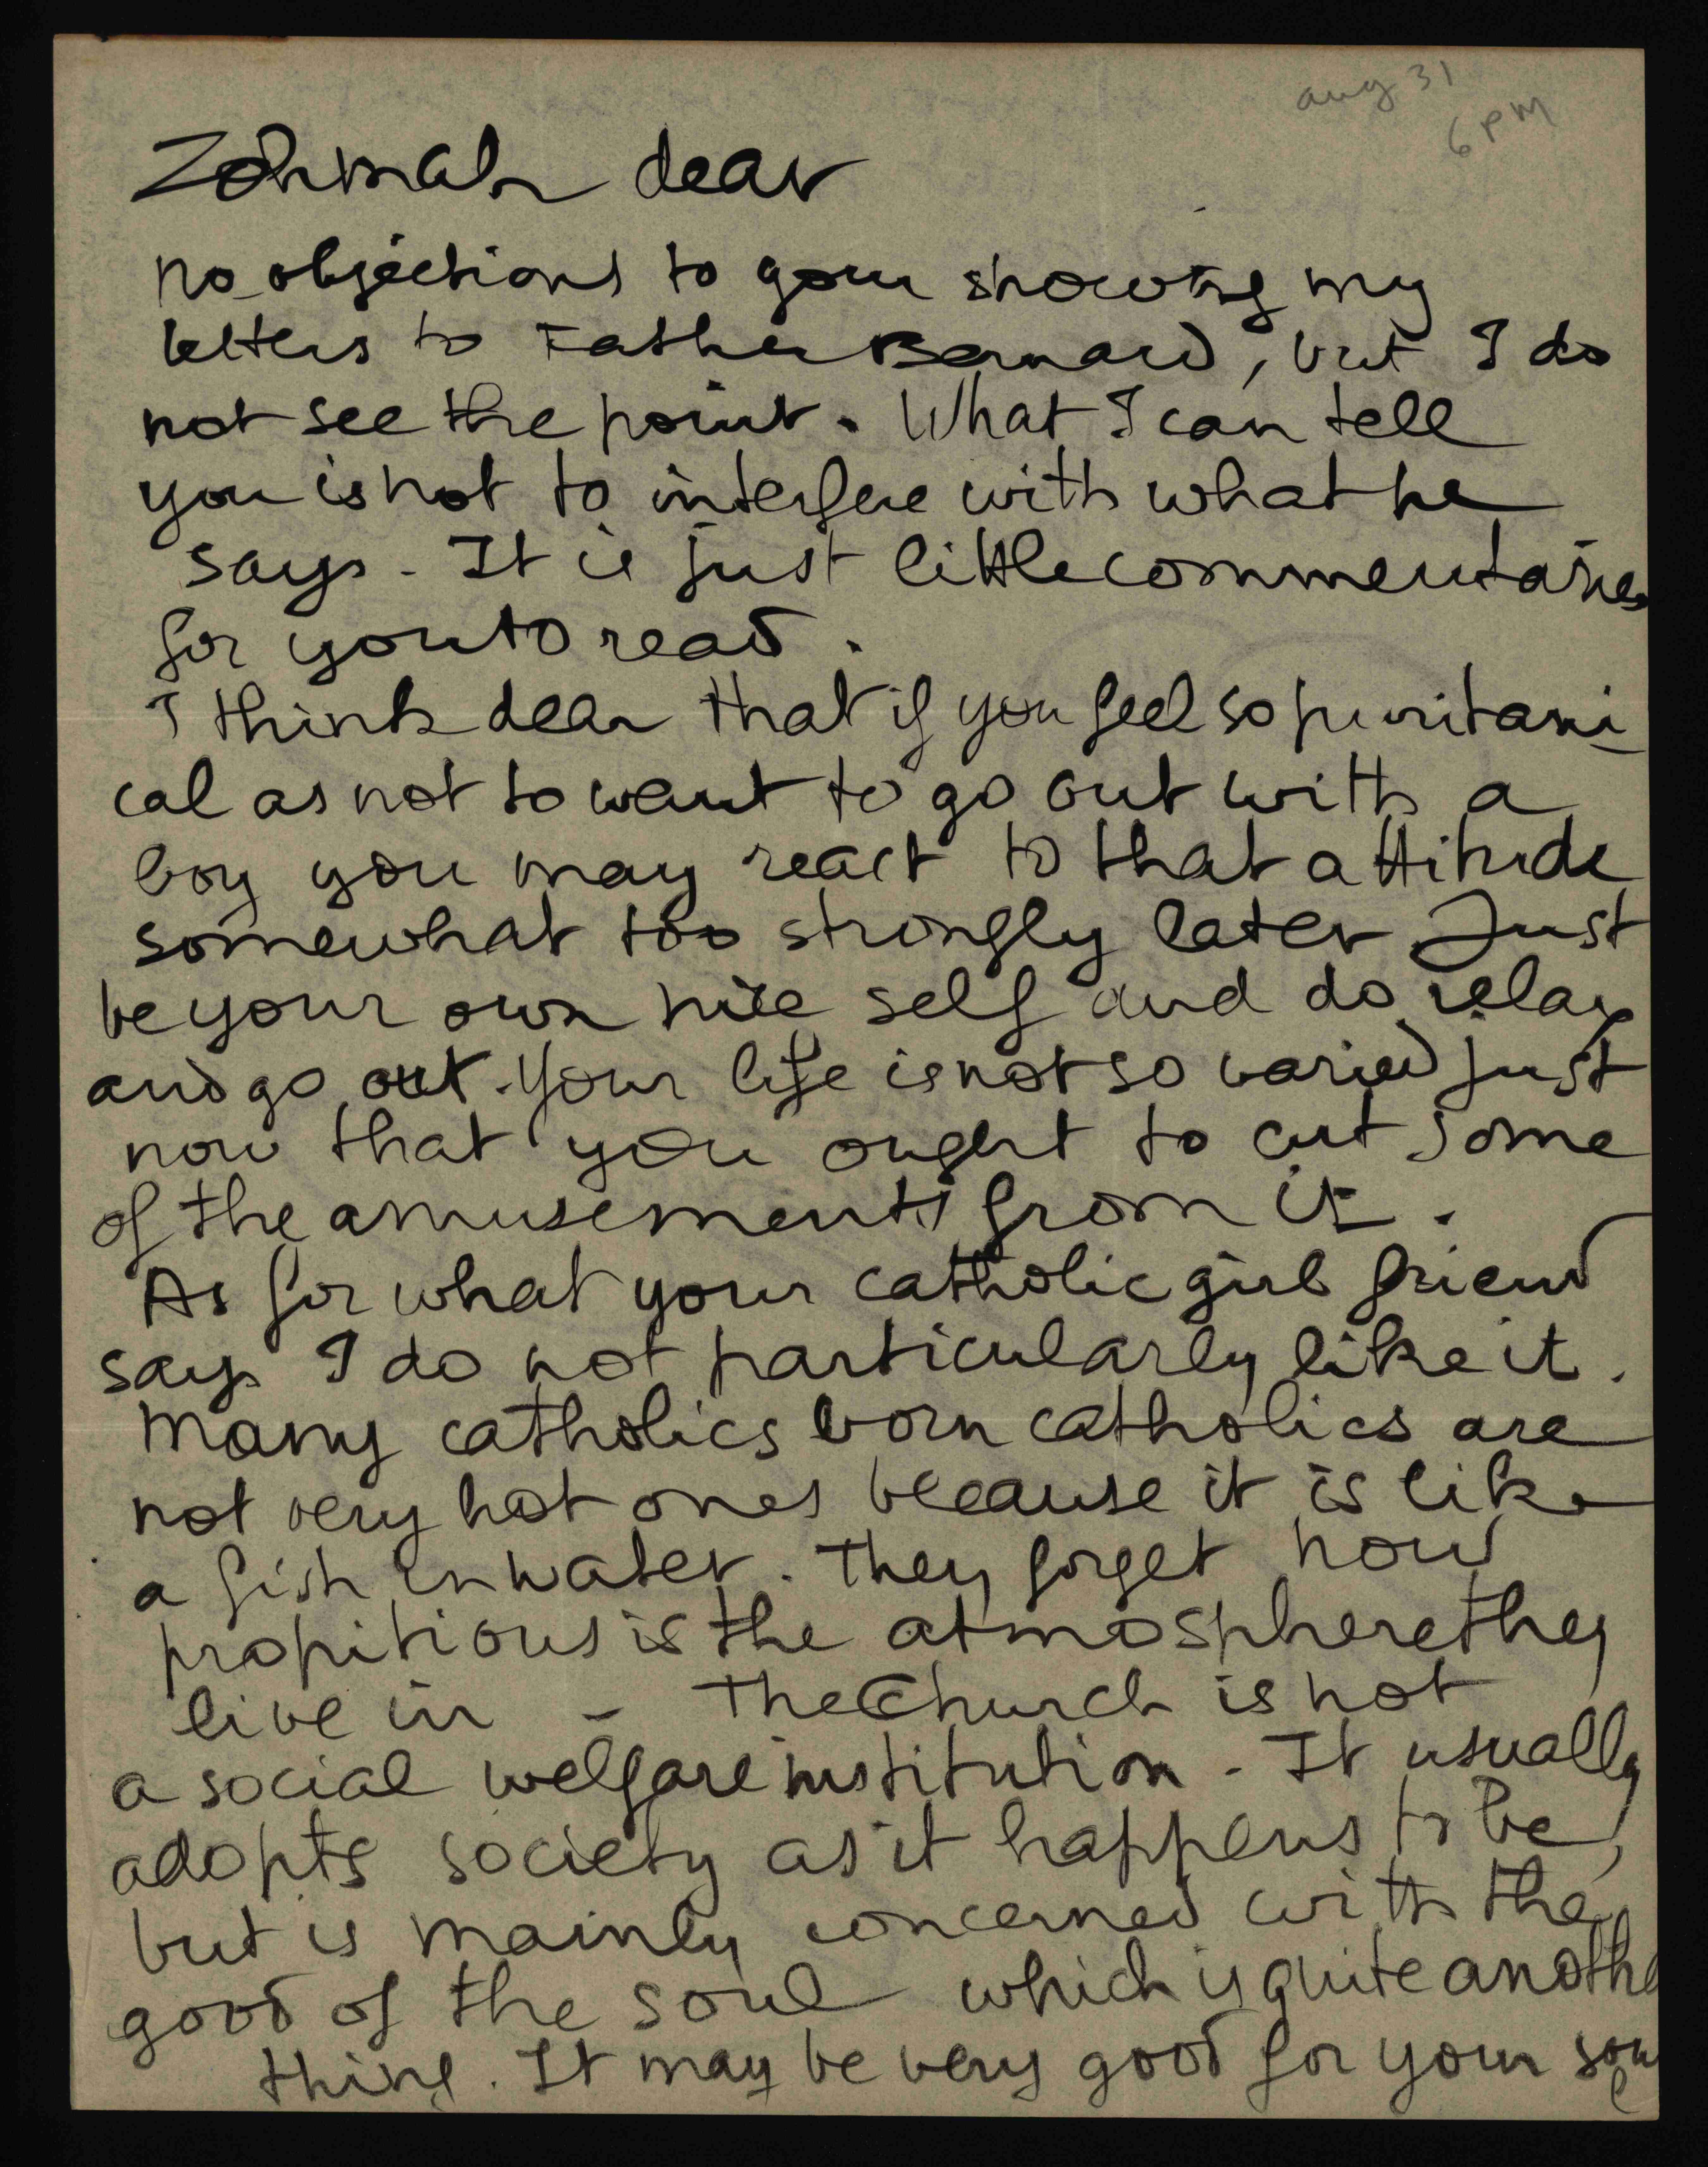 aug 31
6 PM
Zohmah dear
no objections to your showing my
letters to Father Bernard, but I do
not see the point. What I can tell
you is not to interfere with what he
says. It is just little commentaries
for you to read.
I think dear that if you feel so puritani-
cal as not to want to go out with a
boy you may react to that attitude
somewhat too strongly later Just
be your own nice self and do relax
and go out. Your life is not so varied just
now that you ought to cut some
of the amusements from it.
As for what your catholic girl friend
says I do not particularly like it.
Many catholics born catholics are
not very hot ones because it is like
a fish in water. They forget how
propitious is the atmosphere they
live in - The Church is not
a social welfare institution - It usually
adopts society as it happens to be,
but is mainly concerned with the
good of the soul which is quite anothe
thing. It may be very good for your soul